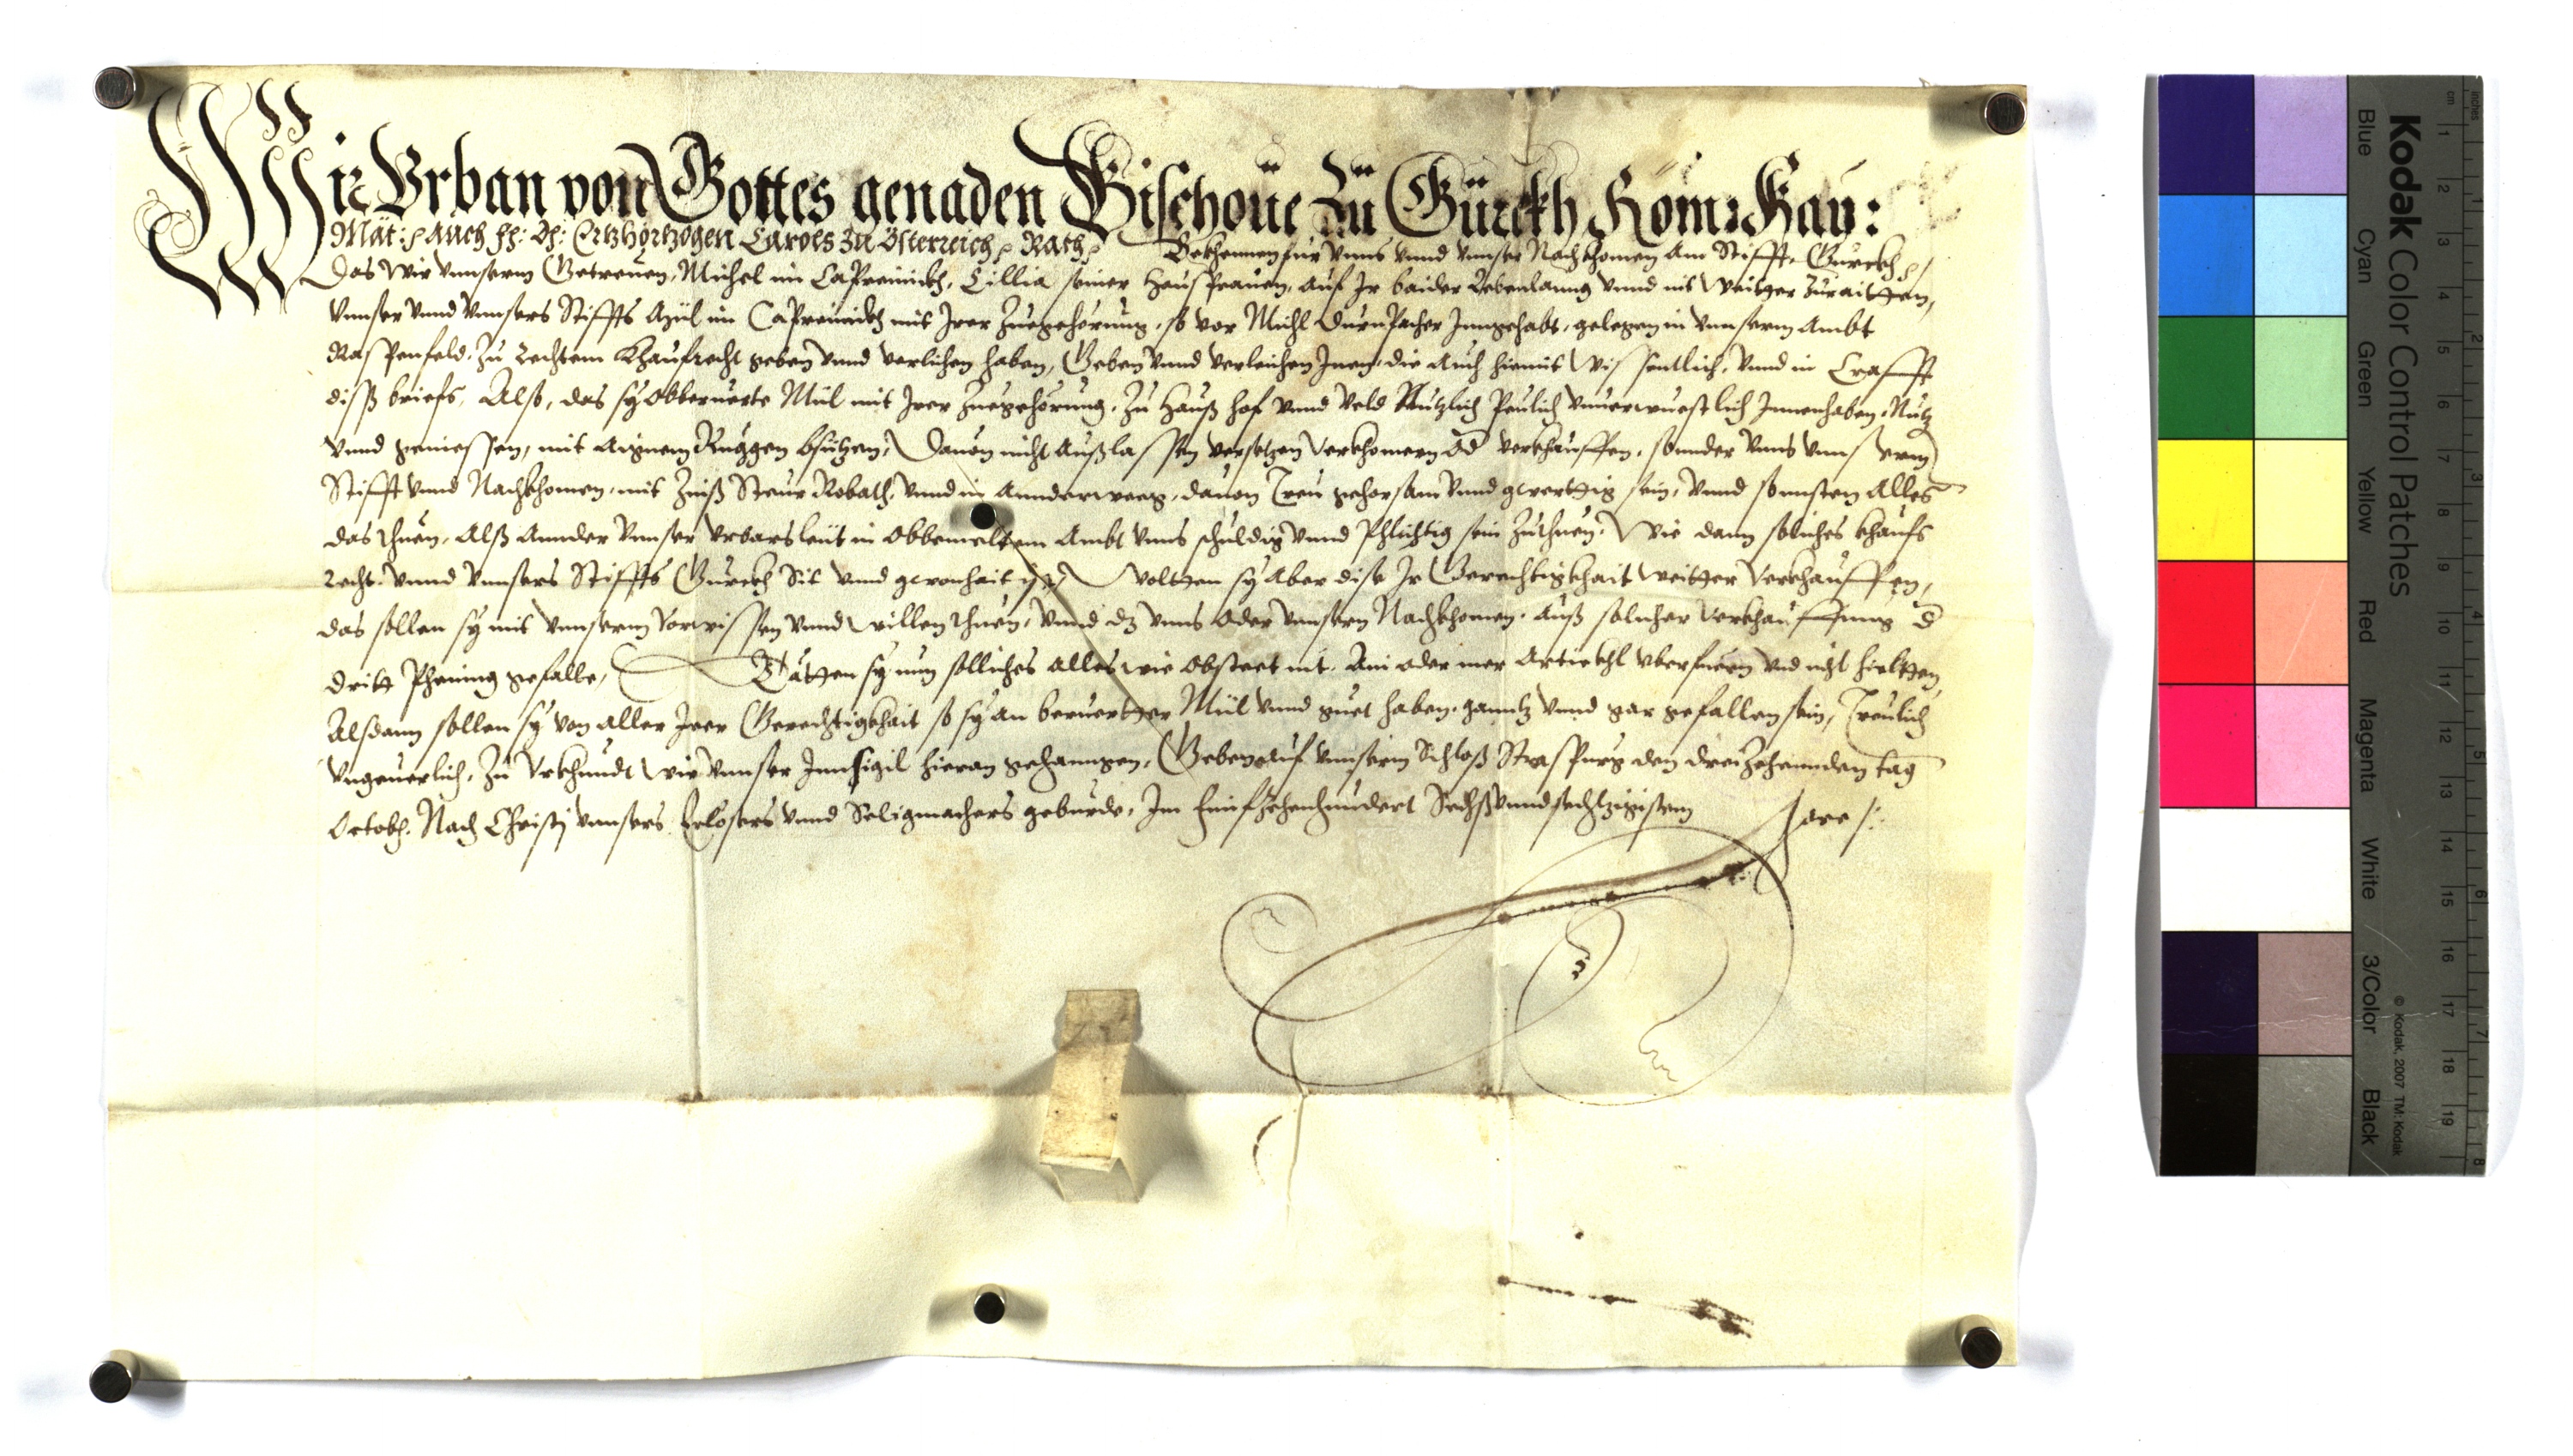 Wir Vrban von Gottes genaden Bischoue zu Gürckh Röm: Kay:
Mät: auch Ertzhörtzogen Carols zu Österreich Rath Bekhennen fur vnns vnnd vnnser Nachkhomen am Stifft Gurckh
Das wir vnnserm Getreuen, Michel im Cillia seiner Hausfrauen, auf Jr baider Lebenlanng vnnd nit weitter zuraitten,
vnnser vnnd vnnsers Stiffts Mül im mit Jrer Zuegehörung, so vor Michl Innegehabt, gelegen in vnnserm Ambt
zu rechtem Khaufrecht geben vnnd verlichen haben, Geben vnnd verleichen Jnen, die auch hiemit wissentlich, vnnd in Crafft
diss briefs, Also, das sy obberuerte Mül mit Jrer Zuegehörung, zu Hauß hof vnnd Veld Nutzlich Peulich vnuerwuestlich Innenhaben, Nutz
vnnd geniessen, mit aignem Ruggen bsützen, Dauon nicht außlassen versetzen verkhomern od verkhauffen, sonnder vnns vnnserm
Stifft vnnd Nachkhomen, mit Zinß Steur Robath, vnnd in annderweeg, dauon Treu gehorsam vnnd gewerttig sein, vnnd sonnsten alles
das thuen, Alß annder vnnser vrbarsleüt in obbemeltem Ambt vnns schuldig vnnd Phlichtig sein zuthuen, Wie dann soliches khaufs
recht, vnnd vnnsers Stiffts Gurckh Sit vnnd gewonhait ist, Wolten sy aber dise Jr Gerechtigkhait weitter verkhauffen,
das sollen sy mit vnnserm Vorwissen vnnd willen thuen, vnnd dz vnns oder vnnsern Nachkhomen, auß solicher verkhauffung d
dritt Phening gefalle, Tätten sy nun solliches alles wie obsteet nit, Ain oder mer Artickhl vberfüern vnd nicht hieltten
Alsdann sollen sy von aller Jrer Gerechtigkhait so sy an beruertter Mül vnnd guet haben, ganntz vnnd gar gefallen sein, Treulich
vngeuerlich, Zu Vrkhundt wir vnnser Innsigil hieran gehanngen, Geben auf vnnserm Schloß Straspurg den dreizehennden tag
Octob. Nach Christj vnnsers Erlösers vnnd Seligmachers geburde, Im Funfzehenhundert Sechßvnndsechtzigistem Jare